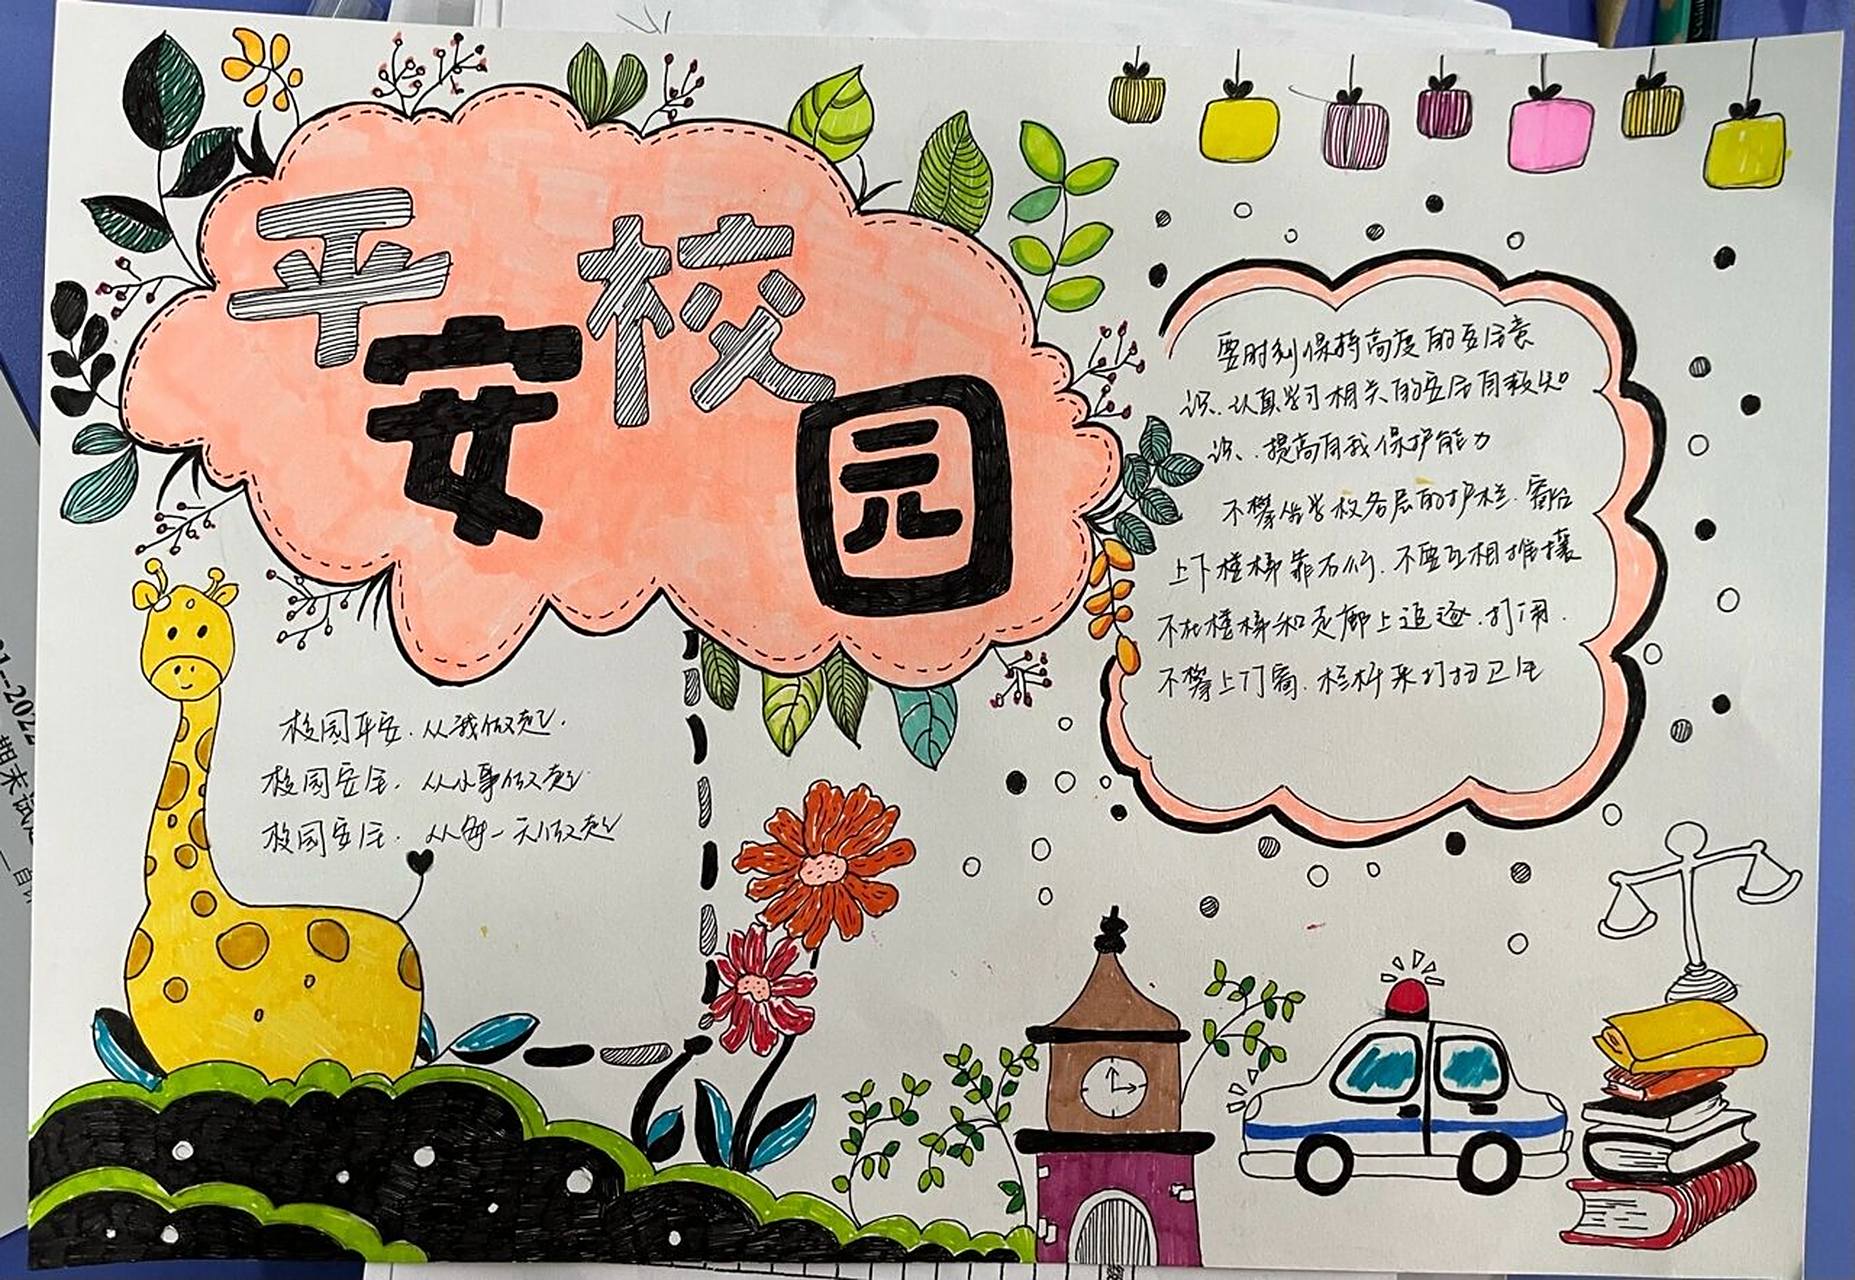 平安校园
要时刻保持高度的安全意
识、认真学习相关的安全自救知
识、提高自我保护能力
不攀爬学校各层的护栏、窗台
上下楼梯靠右行、不要互相推攘
不在楼梯和走廊上追逐、打闹.
不攀上门窗、栏杆来打扫卫生
校园平安、从我做起.
校园安全、从小事做起
校园安全、从每一天做起
-2022
期末试